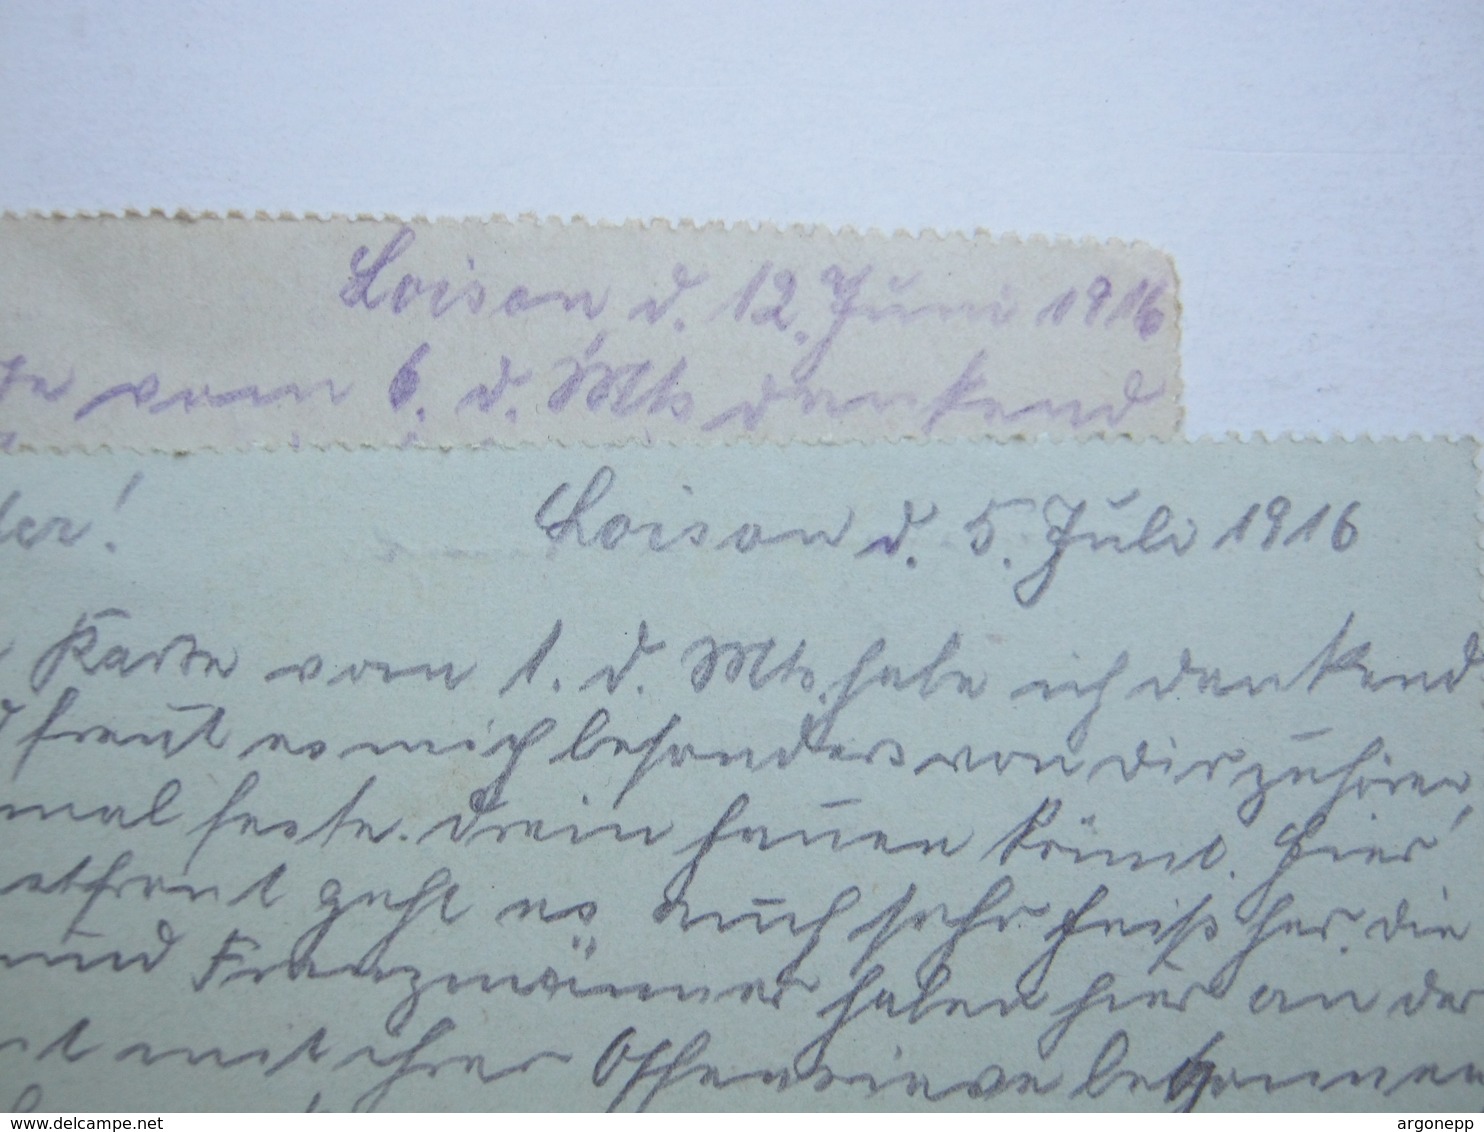 Loison d. 12. Juni 1916
vom 6. d. Mts dankend
Loison d. 5. Juli 1916
Karte vom 1. d. Mts. habe ich dankend
freut es mich besonders von dir zu hören,
mal feste drein hauen könnt. Hier
geht es auch sehr heiß her. Die
und Franzmänner haben hier an der
mit ihrer Offensieve begonnen
www.delcampe.net
argonepp